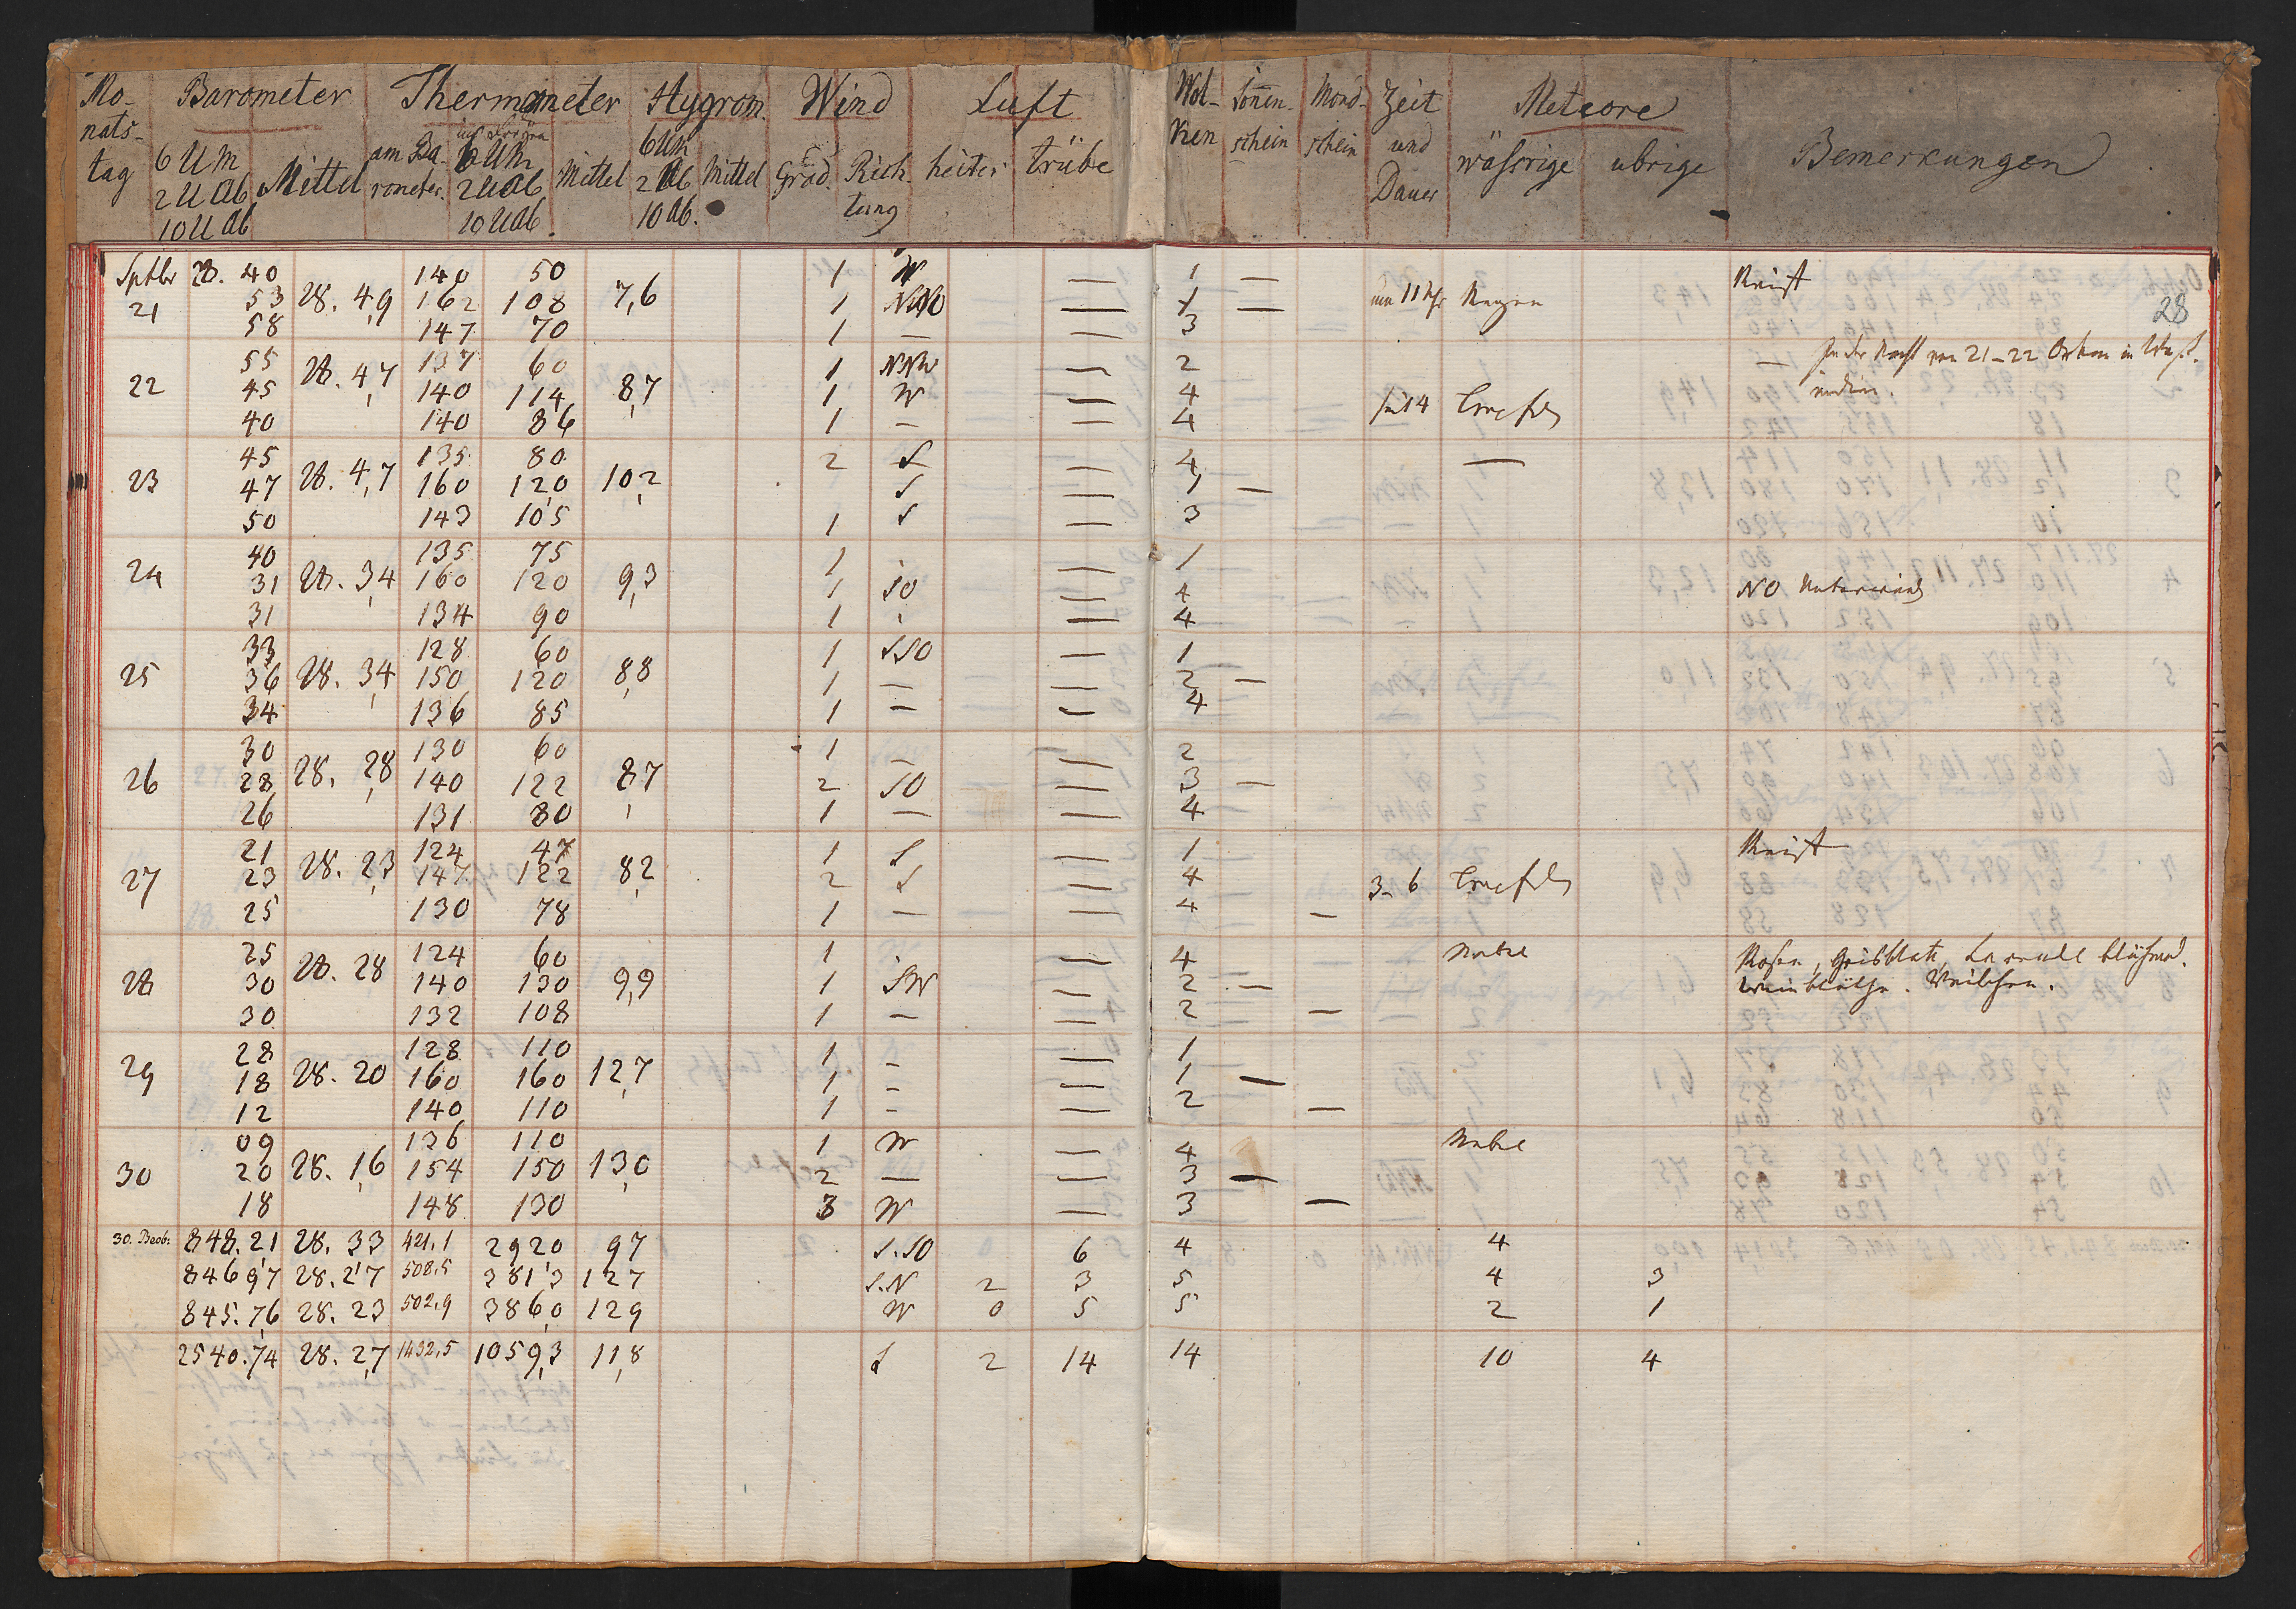 Mo- Barometer Thermometer Hygrom. Wind Luft Wol- Sonnen- Mond- Zeit Meteore
nats- 6 U M am Ba- 6 UM 6 UM ken schein schein und wässrige übrige Bemerkungen
tag 2 U Ab Mittel rometer. 2 U Ab Mittel 2 Ab Mittel Grad. Rich- heiter trübe Dauer
10 U Ab 10 U Ab. 10 Ab. tung
Sptbr 28. 40 140 50 1 W — 1 —
21 53 28. 4,9 162 108 7,6 1 NNO — 1 — um 11 Uhr Regen
58 147 70 1 — — 3
28
55 28. 4,7 137 60 1 NNW — 2 — In der Nacht von 21–22 Orkan in West-
22 45 140 114 8,7 1 W — 4 indien.
40 140 86 1 — — 4
45 135 80 2 S — 4 —
23 47 28. 4,7 160 120 10,2 S — 1 —
50 143 105 1 S — 3
40 135 75 1 — 1
24 31 28. 3,4 160 120 9,3 1 SO — 4 NO Unterwind
31 134 90 1 — 4
33 128 60 1 SSO — 1
25 36 28. 3,4 150 120 8,8 1 — — 2 —
34 136 85 1 — — 4
30 130 60 1 — — 2
26 28 28. 2,8 140 122 8,7 2 SO — 3 —
26 131 80 1 — — 4
21 124 47 1 S — 1
27 23 28. 2,3 147 122 8,2 2 S — 4 3–6
25 130 78 1 — — 4 —
25 124 60 1 — 4 Nebel Rosen, Geisblatt, Lavendel blühend.
28 30 28. 28 140 130 9,9 1 SW — 2 — Weinblüthe. Veilchen.
30 132 108 1 — — 2 —
28 128 110 1 – — 1
29 18 28. 20 160 160 12,7 1 – — 1 —
12 140 110 1 – — 2 —
09 136 110 1 W — 4 Nebel
30 20 28. 1,6 154 150 13,0 2 — — 3 —
18 148 130 3 W — 3 —
30. Beob. 848.21 28. 33 421,1 2920 97 S.SO 6 4 4
846 97 28. 27 508,5 3813 127 S.N 2 3 5 4 3
845.76 28. 23 502,9 3860 129 W 0 5 5 2 1
2540.74 28. 2,7 1432,5 1059,3 11,8 S 2 14 14 10 4